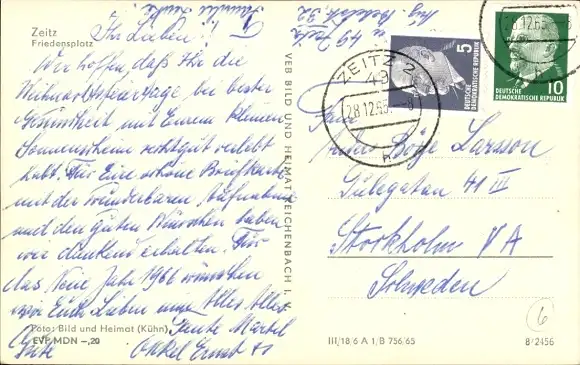 Zeitz
Friedensplatz
Ihr Lieben!
Wir hoffen, daß Ihr die
Weihnachtsfeiertage bei bester
Gesundheit mit Eurem kleinen
Sonnenschein recht gut verlebt
habt. Für Eure schöne Briefkarte
mit der wunderbaren Aufnahme
und den guten Wünschen haben
wir dankend erhalten. Für
das Neue Jahr 1966 wünschen
wir Euch Lieben nur Alles Alles
Gute Tante Martel
Onkel Ernst
Foto: Bild und Heimat (Kühn)
EVP MDN -,20
VEB BILD UND HEIMAT REICHENBACH I. V.
49 Zeitz
32
ZEITZ 2
49
28.12.65.-8
h
5
DEUTSCHE
DEMOKRATISCHE REPUBLIK
28.12.65
10
DEUTSCHE
DEMOKRATISCHE REPUBLIK
Fam.
Böge Larsson
Tulegatan 41 III
Stockholm VA
Schweden
6
III/18/6 A 1/B 756/65
8/2456